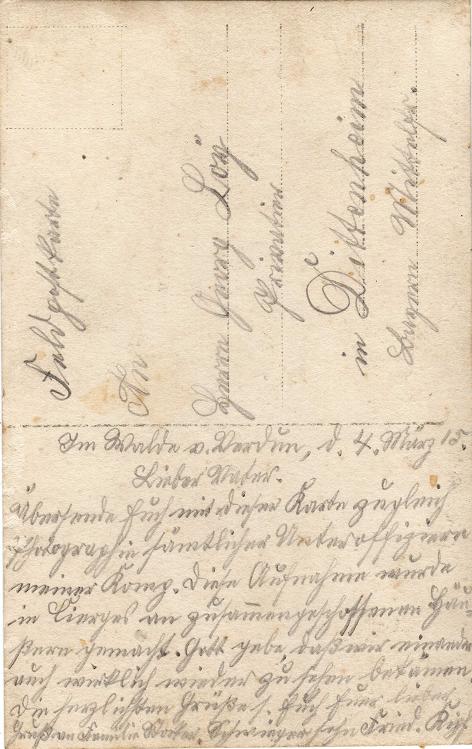 Feldpostkarte
An
Herrn Georg Löy
Privatier
in Dittenheim
Bayern Mittelfr.
Im Walde v. Verdun, d. 4. März 15.
Lieber Vater.
Übersende Euch mit dieser Karte zugleich
Photographie sämtlicher Unteroffiziere
meiner Komp. Diese Aufnahme wurde
in Cierges an zusammengeschossenen Häu-
sern gemacht. Gott gebe, daß wir einander
auch wirklich wieder zu sehen bekämen.
Die herzlichsten Grüße s. Euch Euer lieber
Gruß an Familie Schwiegersohn Fried.